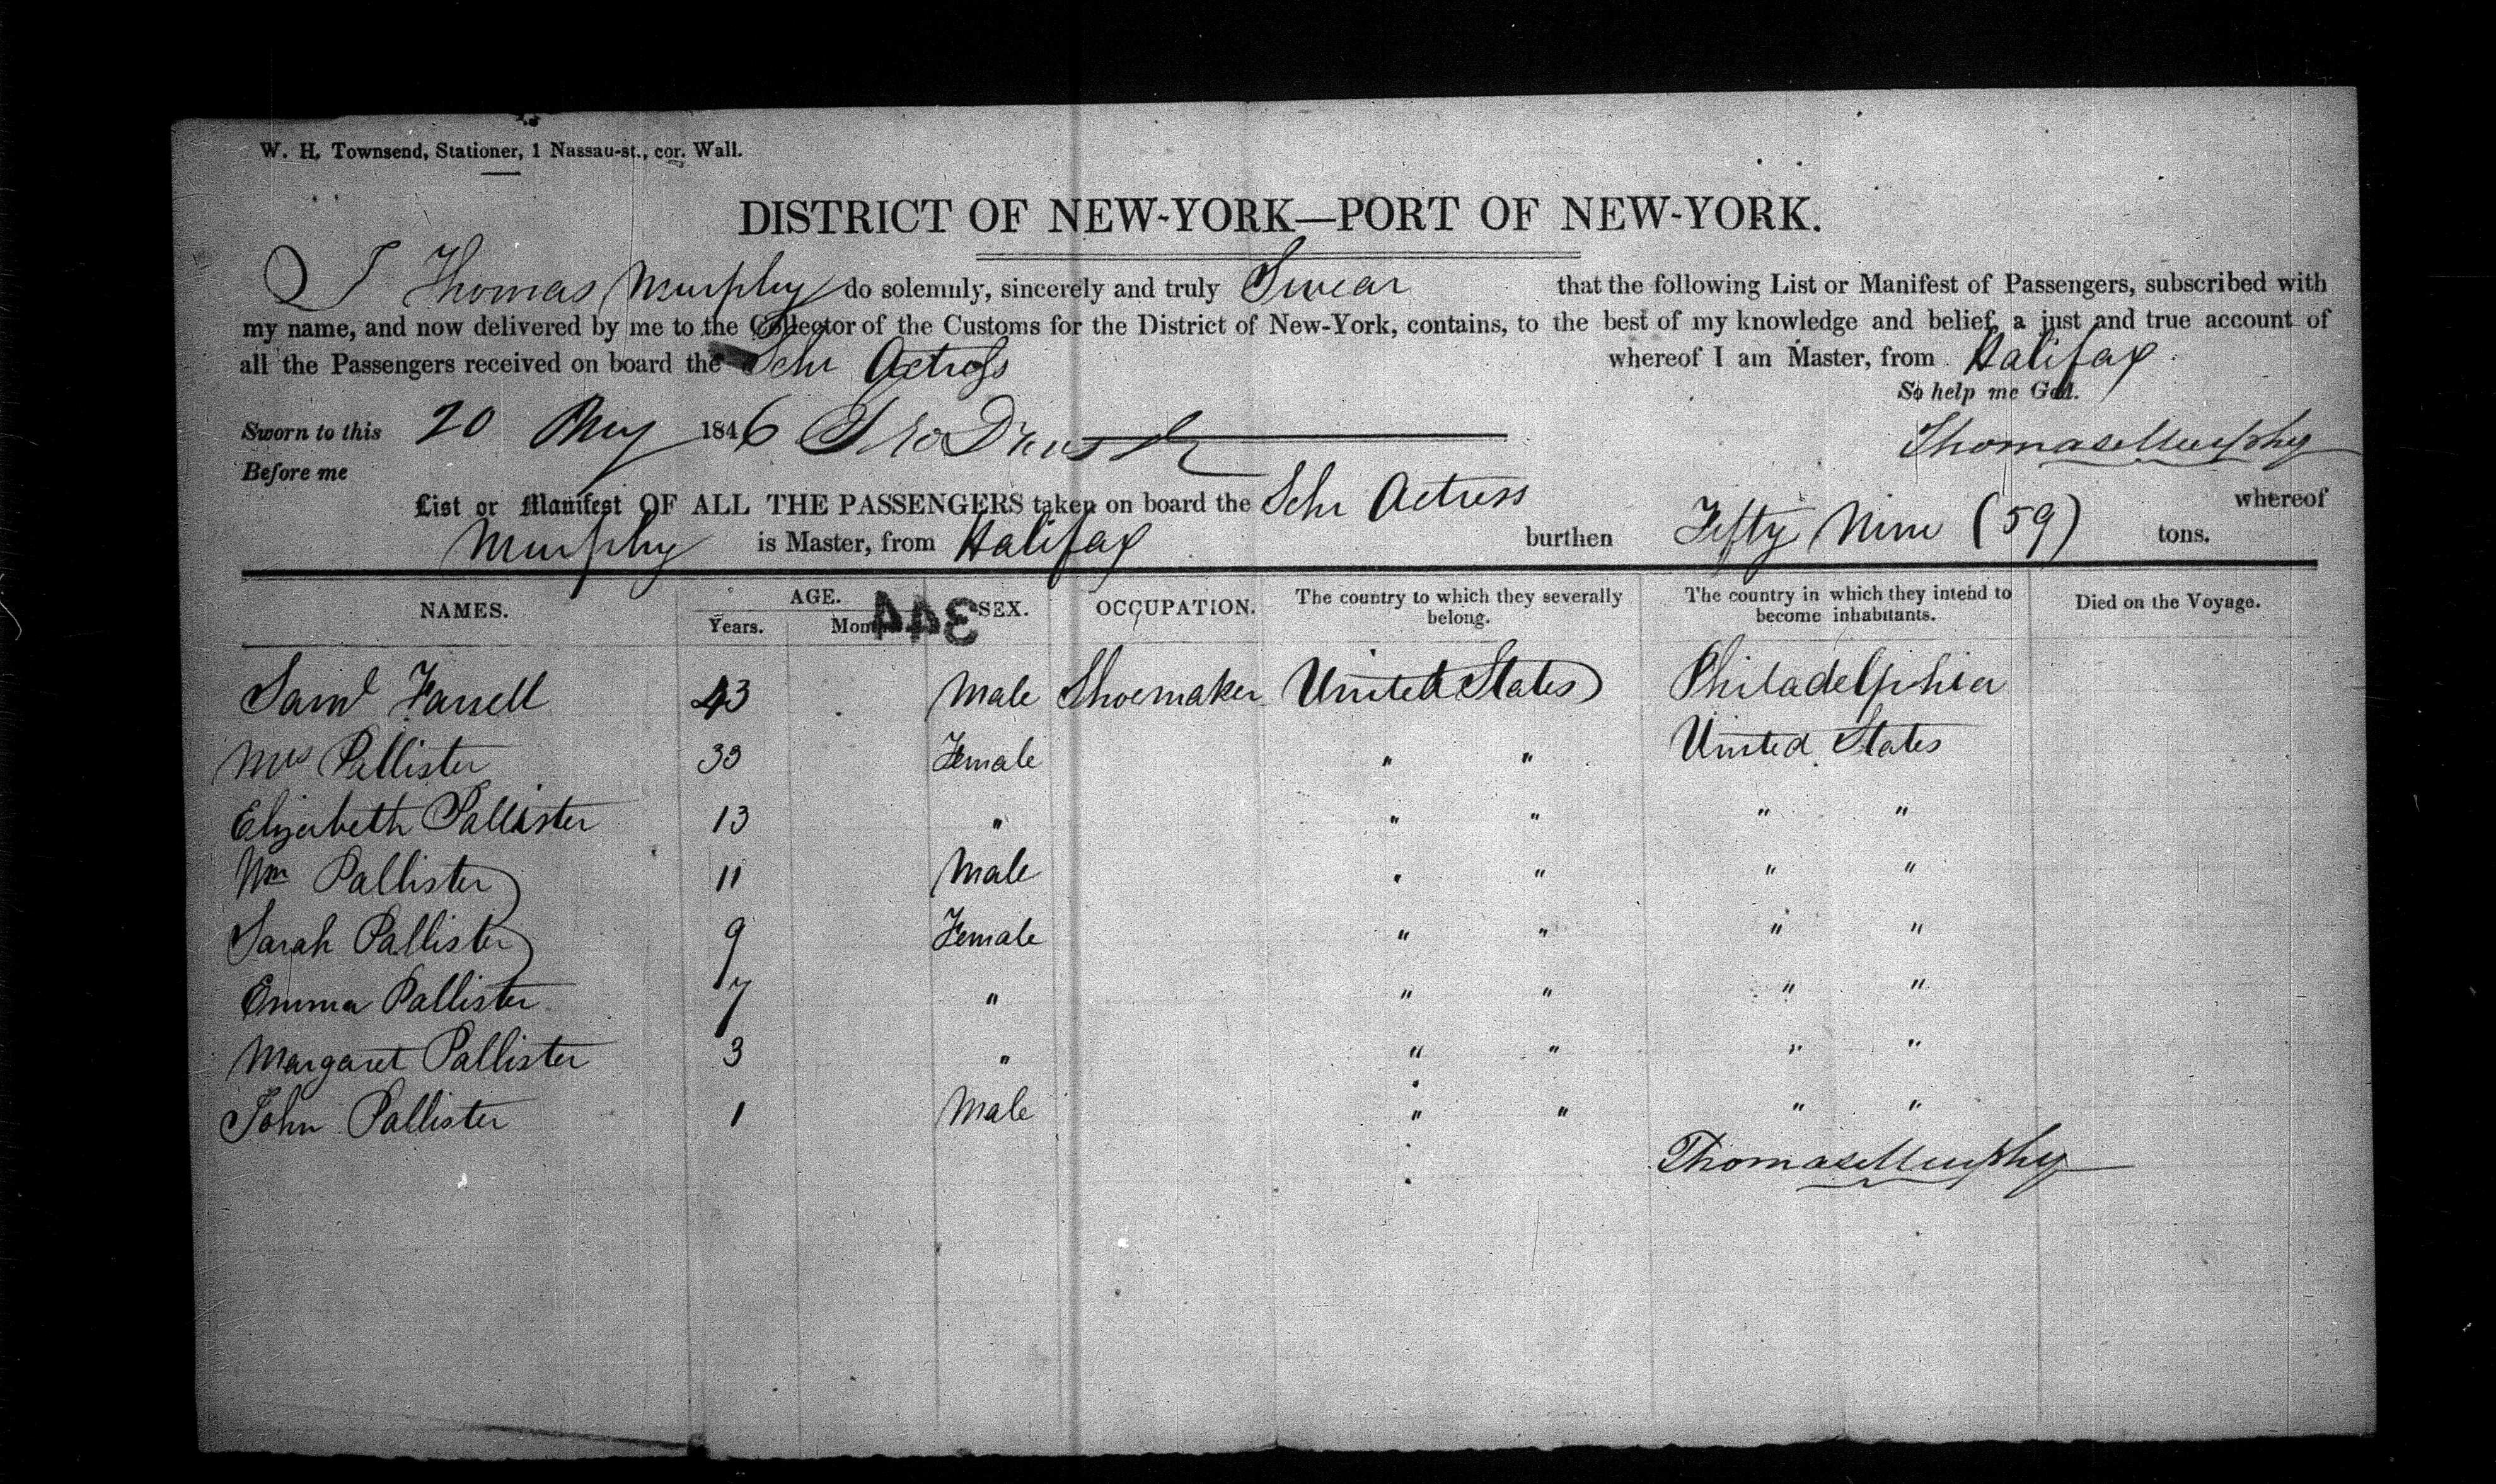 W. H. Townsend, Stationer, 1 Nassau-st., cor. Wall.
DISTRICT OF NEW-YORK—PORT OF NEW-YORK.
I Thomas Murphy do solemnly, sincerely and truly Swear that the following List or Manifest of Passengers, subscribed with
my name, and now delivered by me to the Collector of the Customs for the District of New-York, contains, to the best of my knowledge and belief, a just and true account of
all the Passengers received on board the Schr Actress whereof I am Master, from Halifax
So help me God.
Sworn to this 20 May 1846
Thomas Murphy
Before me
List or Manifest OF ALL THE PASSENGERS taken on board the Schr Actress whereof
Murphy is Master, from Halifax burthen Fifty Nine (59) tons.
NAMES. AGE. SEX. OCCUPATION. The country to which they severally belong. The country in which they intend to become inhabitants. Died on the Voyage.
Years. Months
344
Saml Farrell 43 Male Shoemaker United States Philadelphia
Mrs Pallister 33 Female " " United States
Elizabeth Pallister 13 " " " " "
Wm Pallister 11 Male " " " "
Sarah Pallister 9 Female " " " "
Emma Pallister 7 " " " " "
Margaret Pallister 3 " " " " "
John Pallister 1 Male " " " "
Thomas Murphy